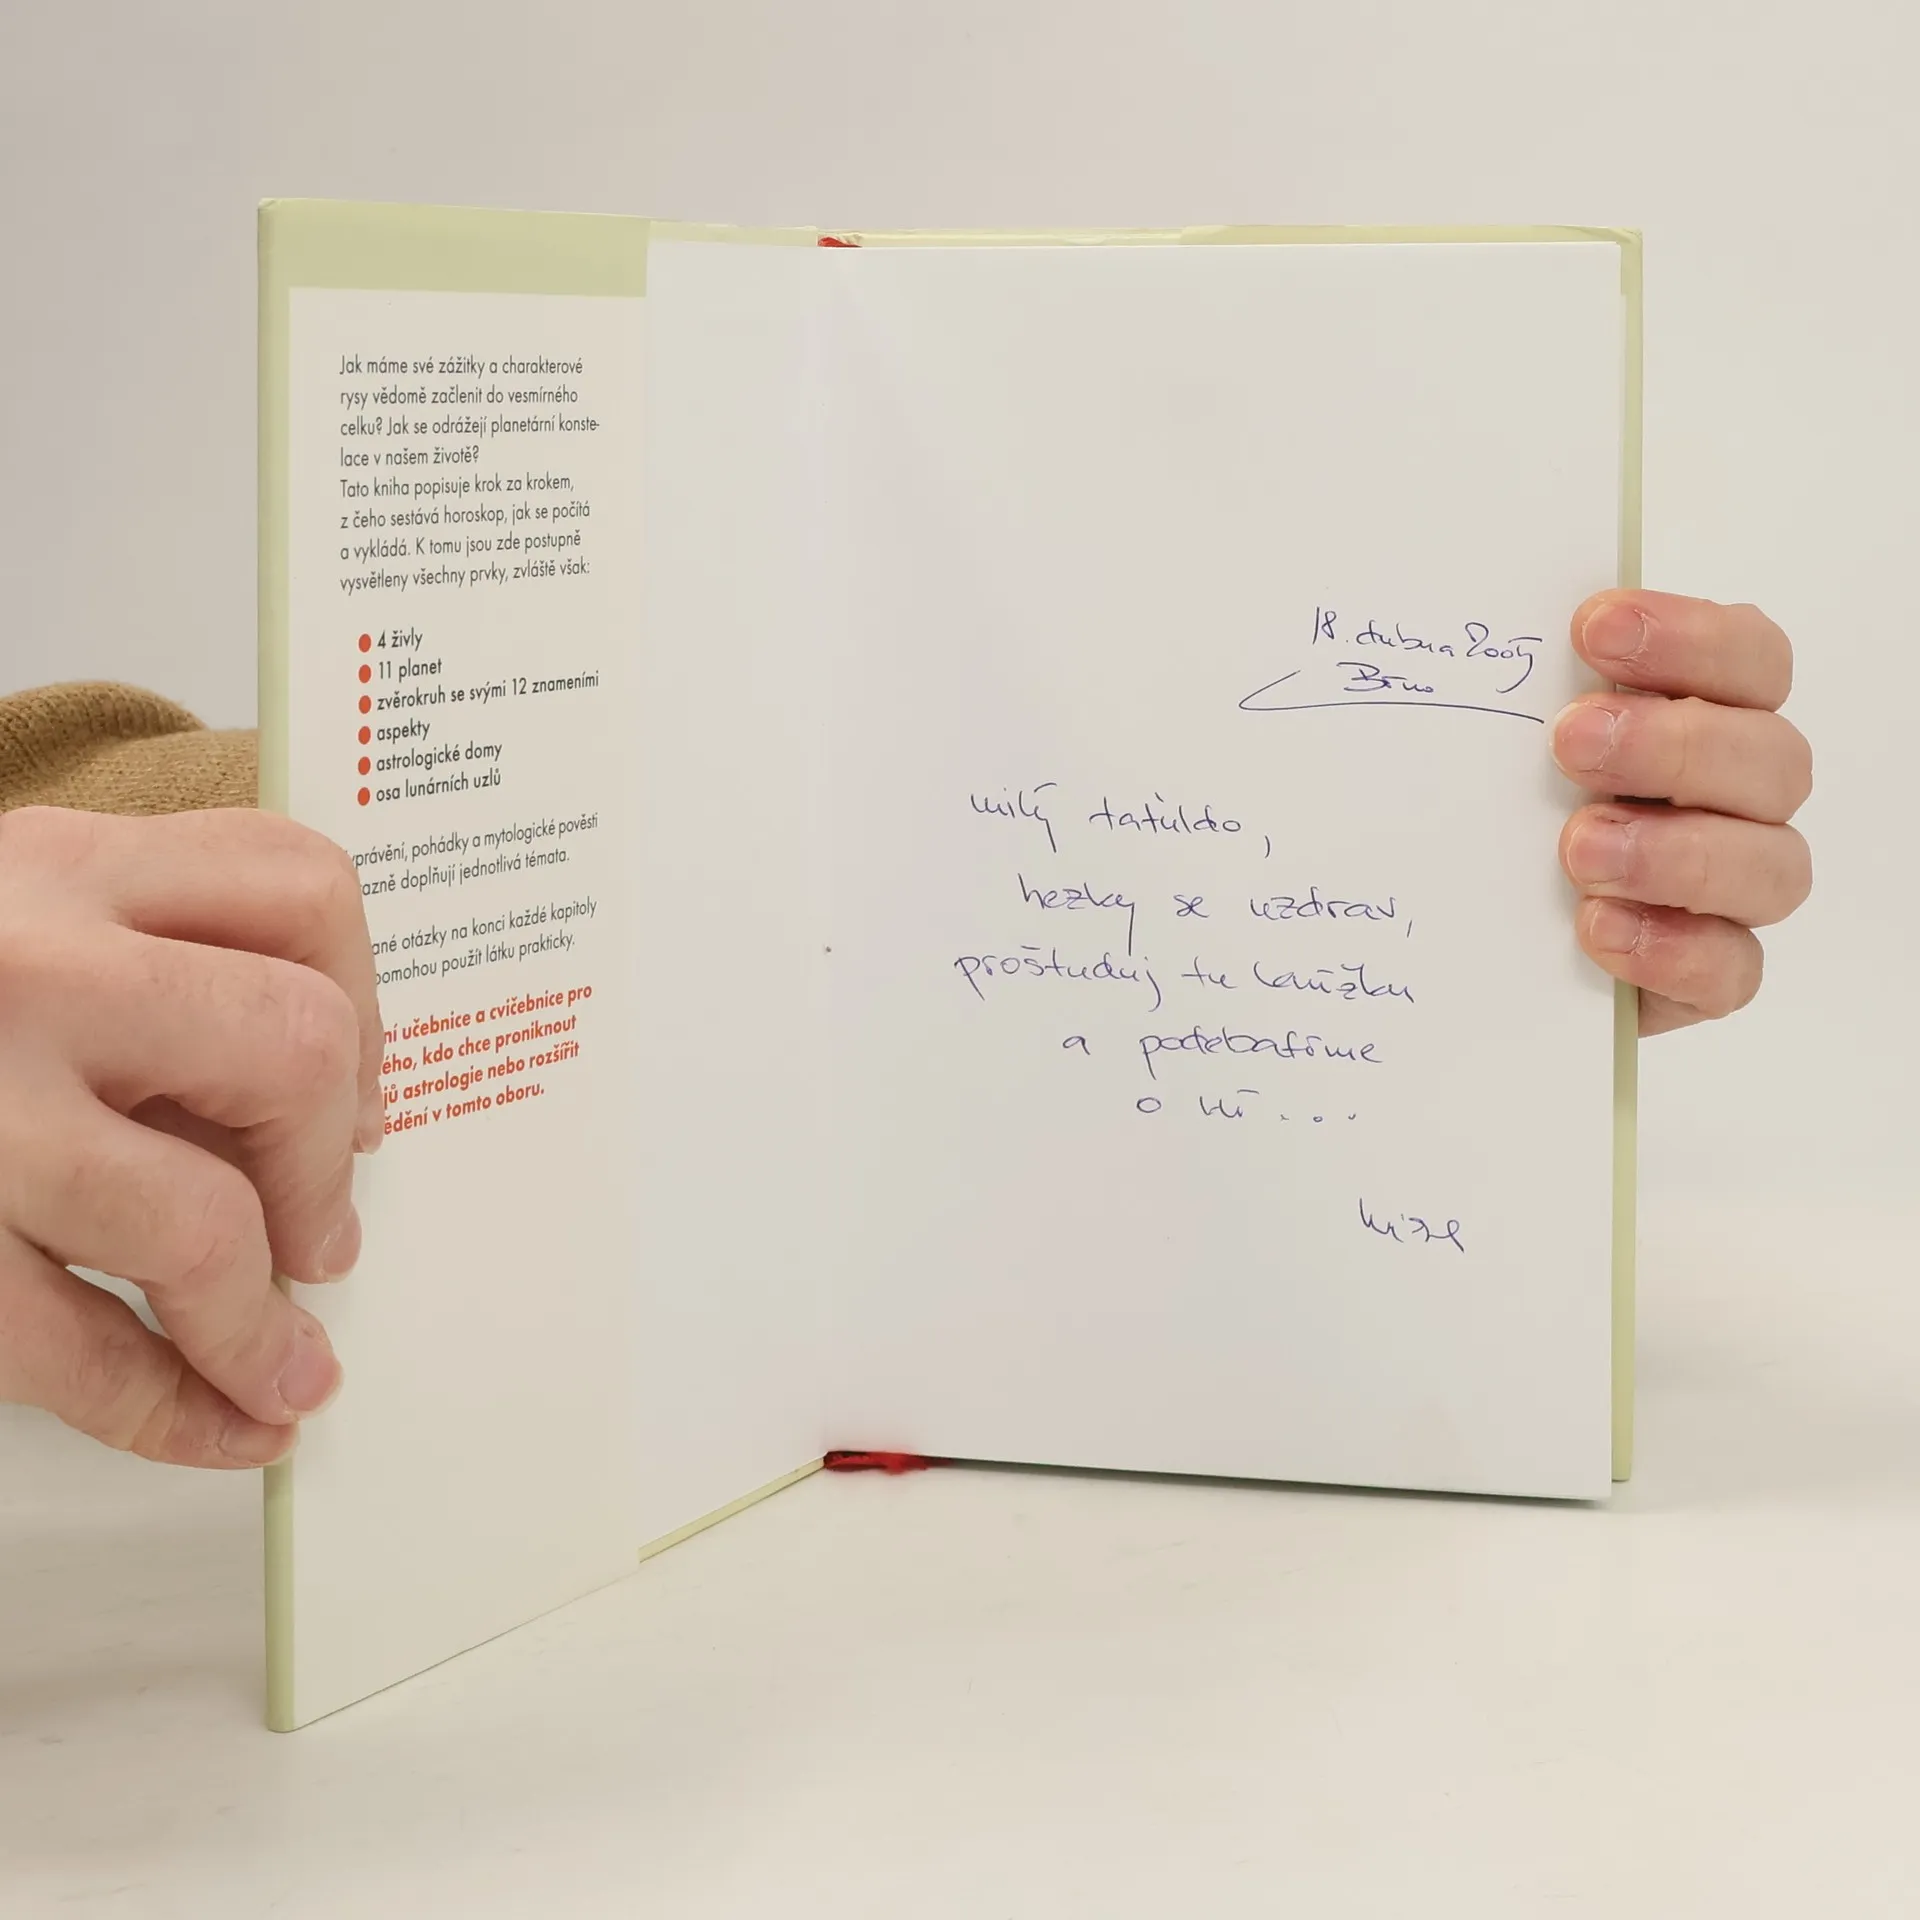 Jak máme své zážitky a charakterové
rysy vědomě začlenit do vesmírného
celku? Jak se odrážejí planetární konste-
lace v našem životě?
Tato kniha popisuje krok za krokem,
z čeho sestává horoskop, jak se počítá
a vykládá. K tomu jsou zde postupně
vysvětleny všechny prvky, zvláště však:
4 živly
11 planet
zvěrokruh se svými 12 znameními
aspekty
astrologické domy
osa lunárních uzlů
yprávění, pohádky a mytologické pověsti
azně doplňují jednotlivá témata.
ané otázky na konci každé kapitoly
pomohou použít látku prakticky.
ní učebnice a cvičebnice pro
ého, kdo chce proniknout
jů astrologie nebo rozšířit
ědění v tomto oboru.
18. dubna
Brno
milý taťuldo,
hezky se uzdrav,
prostuduj tu knížku
a podebatíme
o ní...